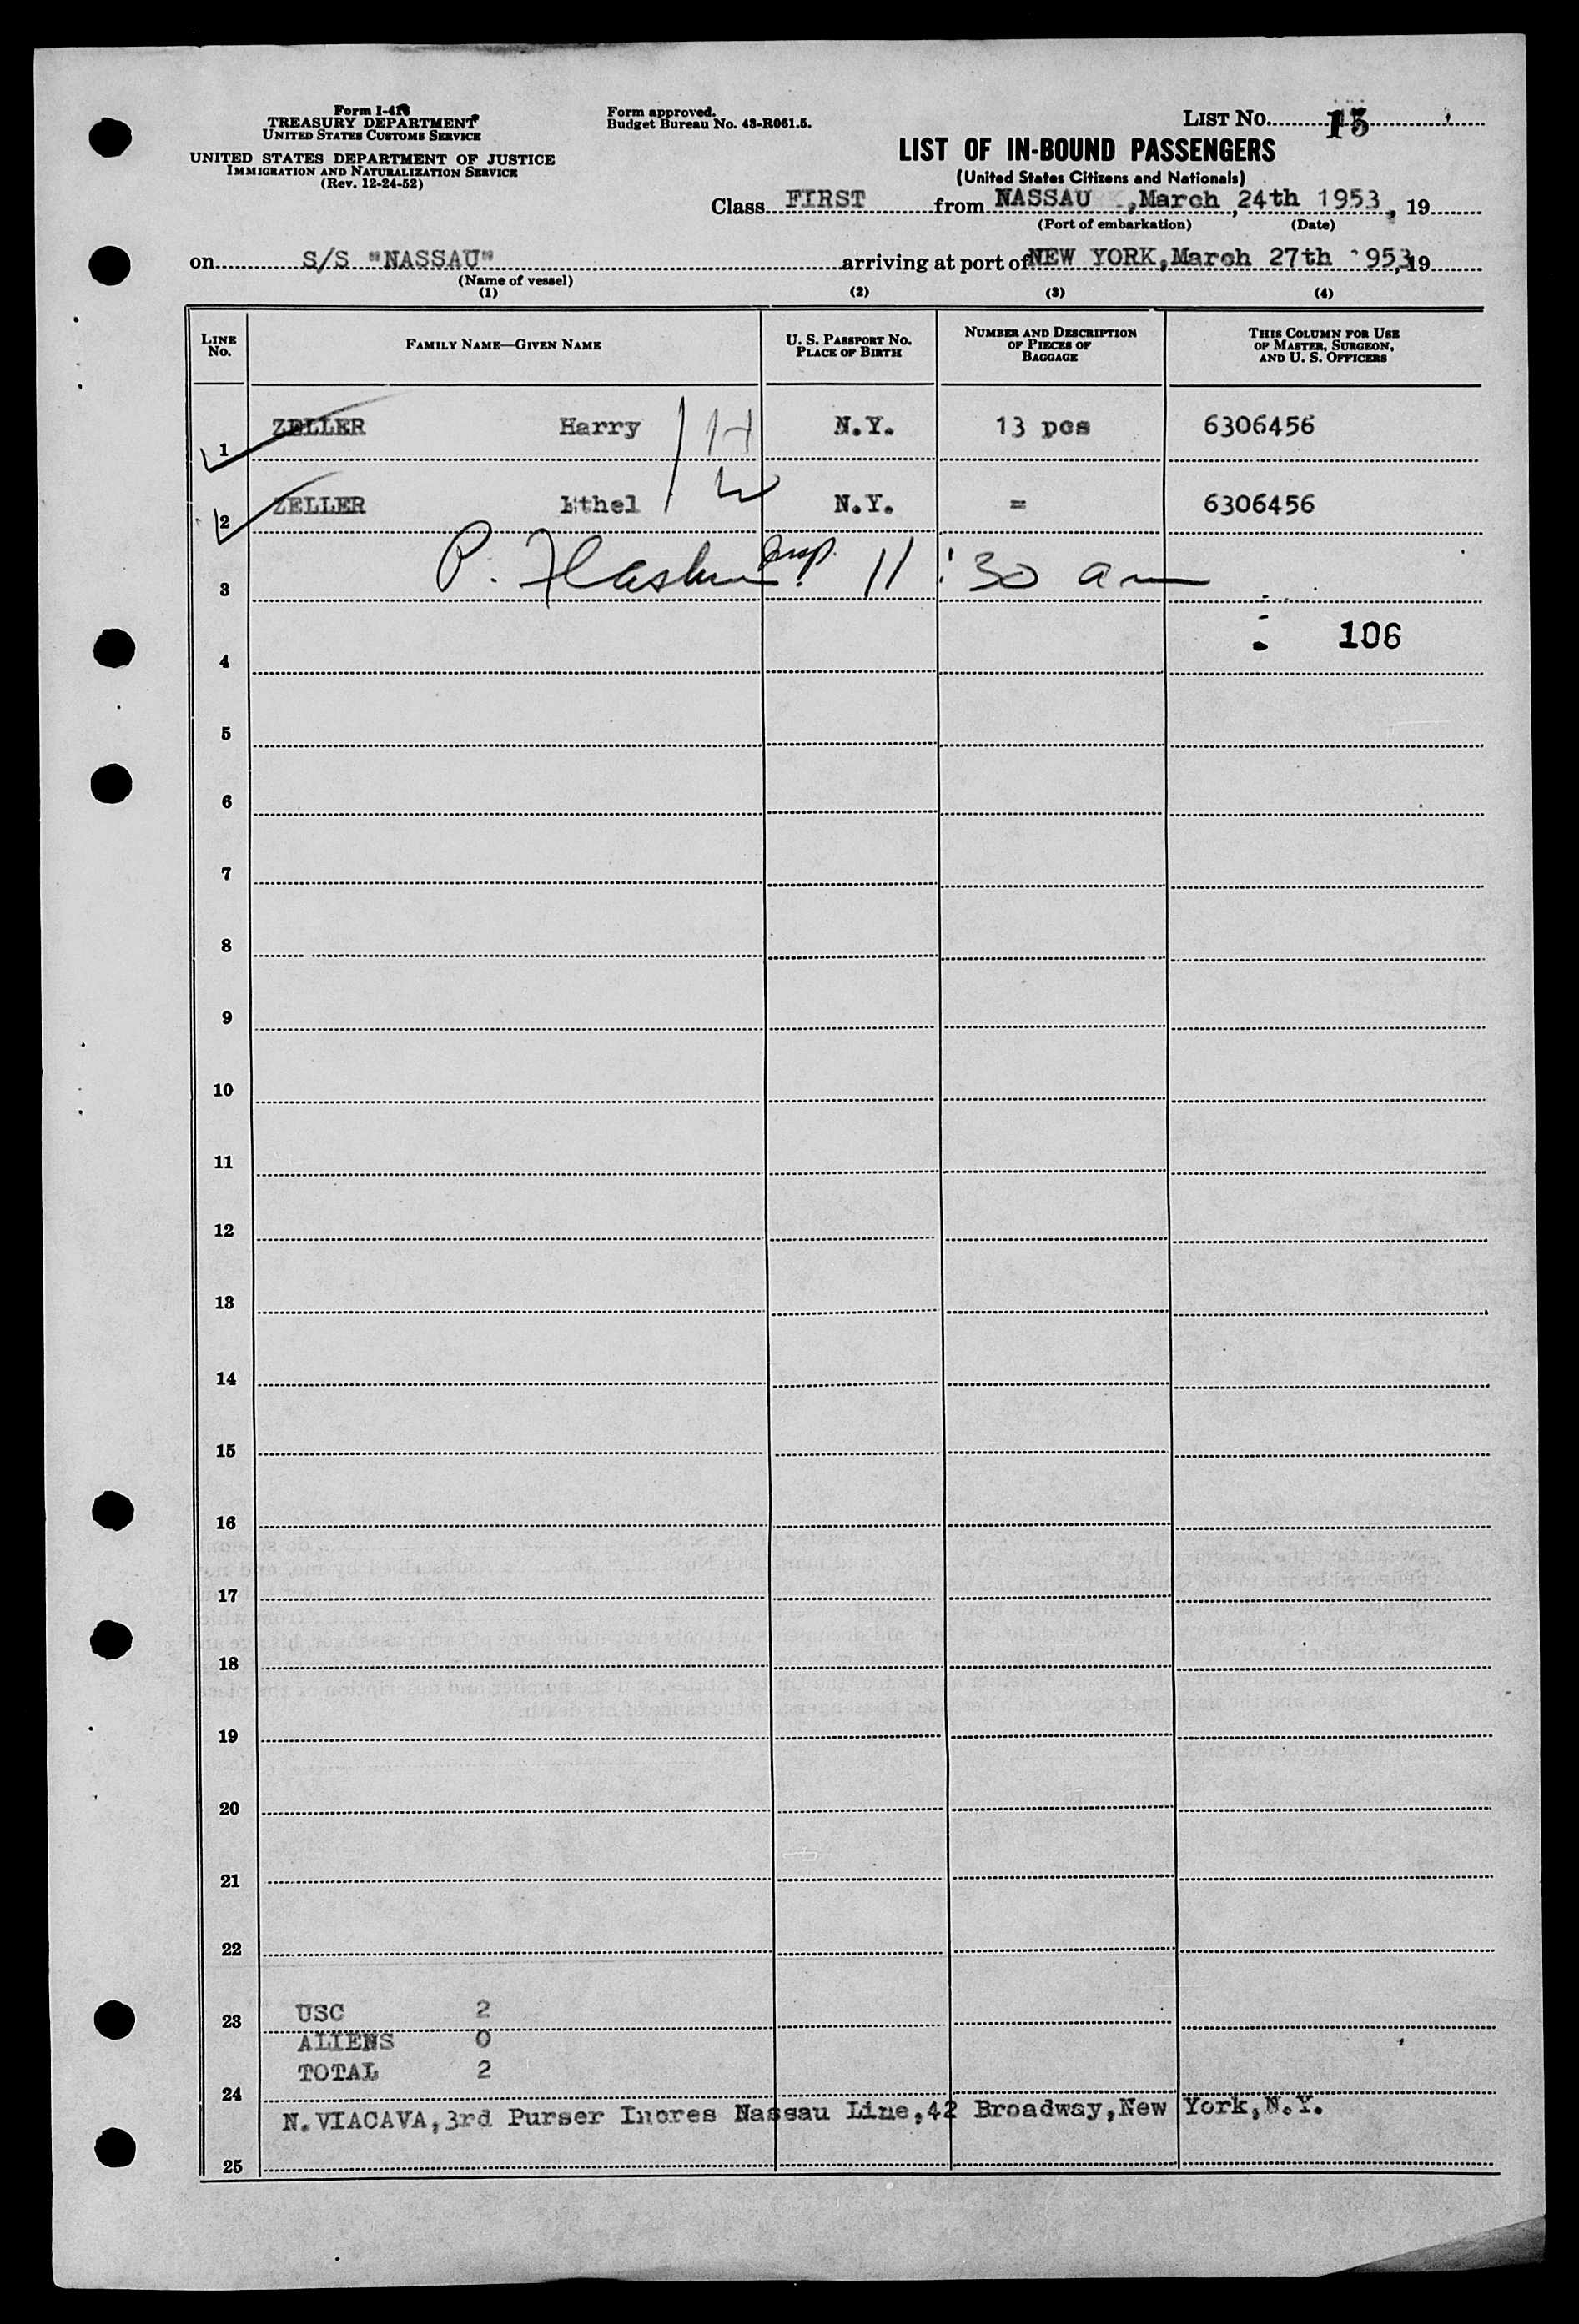 Form I-418
TREASURY DEPARTMENT
UNITED STATES CUSTOMS SERVICE
UNITED STATES DEPARTMENT OF JUSTICE
IMMIGRATION AND NATURALIZATION SERVICE
(Rev. 12-24-52)
Form approved.
Budget Bureau No. 43-R061.5.
LIST NO. 15
LIST OF IN-BOUND PASSENGERS
(United States Citizens and Nationals)
Class FIRST from NASSAU, March, 24th 1953, 19
(Port of embarkation) (Date)
on S/S "NASSAU" arriving at port of NEW YORK, March 27th 1953, 19
(Name of vessel)
(1) (2) (3) (4)
LINE No. FAMILY NAME—GIVEN NAME U. S. PASSPORT NO. PLACE OF BIRTH NUMBER AND DESCRIPTION OF PIECES OF BAGGAGE THIS COLUMN FOR USE OF MASTER, SURGEON, AND U. S. OFFICERS
1 ZELLER Harry H N.Y. 13 pcs 6306456
2 ZELLER Ethel W N.Y. = 6306456
3 P. Insp. 11:30 am
4 106
5
6
7
8
9
10
11
12
13
14
15
16
17
18
19
20
21
22
23 USC 2
ALIENS 0
TOTAL 2
24
N. VIACAVA, 3rd Purser Incres Nassau Line, 42 Broadway, New York, N.Y.
25